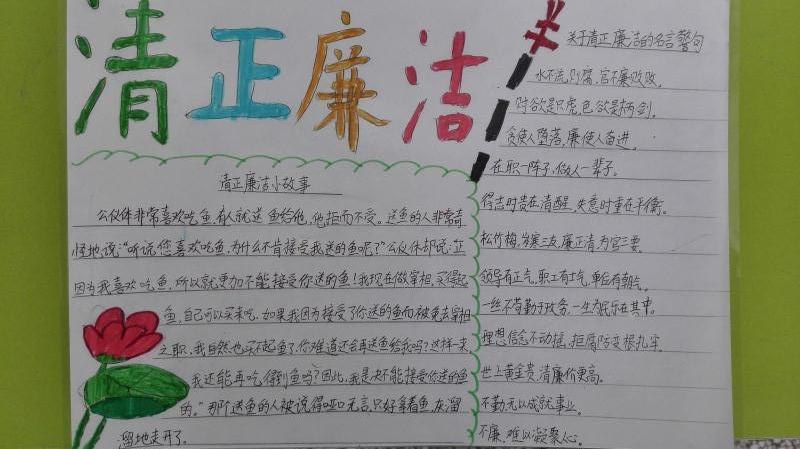 清正廉洁
清正廉洁小故事
公仪休非常喜欢吃鱼,有人就送鱼给他,他拒而不受。送鱼的人非常奇
怪地说:“听说您喜欢吃鱼,为什么不肯接受我送的鱼呢?”公仪休却说:“正
因为我喜欢吃鱼,所以就更加不能接受你送的鱼!我现在做宰相,买得起
鱼,自己可以买来吃。如果我因为接受了你送的鱼而被免去宰相
之职,我自然也买不起鱼了,你难道还会再送鱼给我吗?这样一来,
我还能再吃得到鱼吗?因此,我是决不能接受你送的鱼
的。”那个送鱼的人被说得哑口无言,只好拿着鱼,灰溜
溜地走开了。
关于清正廉洁的名言警句
水不流则腐,官不廉则败。
财欲是只虎,色欲是柄剑。
贪使人堕落,廉使人奋进。
在职一阵子,做人一辈子。
得志时贵在清醒,失意时重在平衡。
松竹梅,岁寒三友,廉正清,为官三要。
领导有正气,职工有士气,单位有朝气。
一丝不苟勤于政务,一生为民乐在其中。
理想信念不动摇,拒腐防变根扎牢。
世上黄金贵,清廉价更高。
不勤无以成就事业。
不廉,难以凝聚人心。